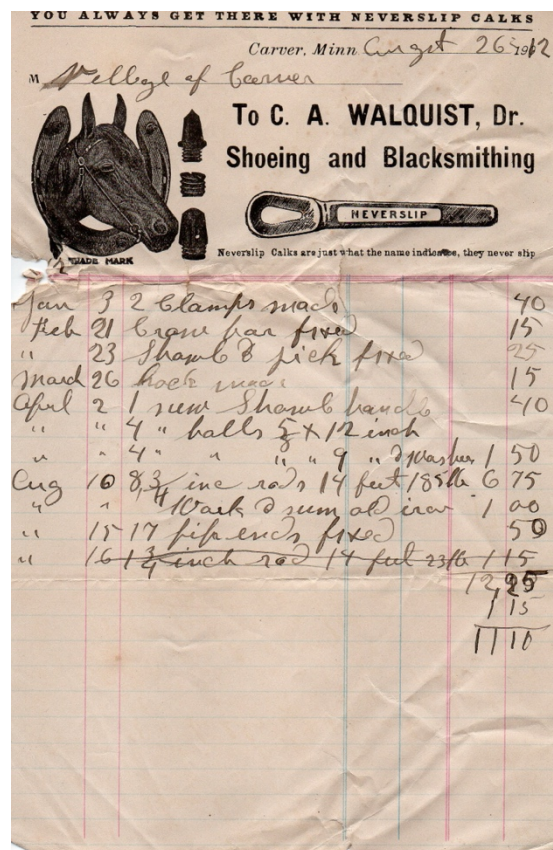 YOU ALWAYS GET THERE WITH NEVERSLIP CALKS
Carver, Minn. Augst 26 1912
M Villege of Carver
To C. A. WALQUIST, Dr.
Shoeing and Blacksmithing
NEVERSLIP
TRADE MARK
Neverslip Calks are just what the name indicates, they never slip
Jan 3 2 Clamps made 40
Feb 21 Crow bar fixed 15
" 23 Showl & pick fixed 25
March 26 hook made 15
April 2 1 new Showl handle 40
" " 4 " bolts 5/8 x 12 inch
" " 4 " " " " 9 " & washer 1 50
Aug 10 8 3/4 inc rods 14 feet 185 lb 6 75
" " Work & sum old iron 1 00
" 15 17 pip ends fixed 50
" 16 1 3/4 inch rod 14 feet 23 lb 1 15
12 25
1 15
11 10